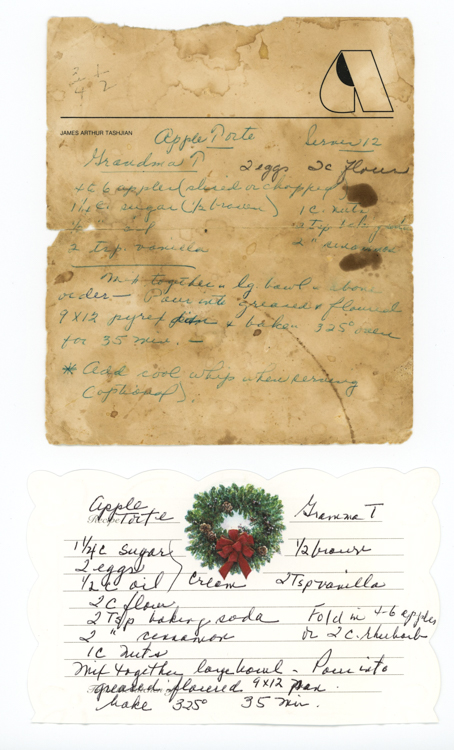 3 1
4 2
JAMES ARTHUR TASHJIAN
Apple Torte Serves 12
Grandma T 2 eggs 2c flour
4 to 6 apples (sliced or chopped)
1 1/4 c sugar (1/2 brown) 1 C. nuts
1/2 " oil 2 Tsp
2 tsp. vanilla 2 " cinnamon
Mix together in lg. bowl in above
order — Pour into greased & floured
9x12 pyrex & bake 325° oven
for 35 min. —
* Add cool whip when serving
(optional).
Apple Gramma T
Recipe Torte
1 1/4 c sugar 1/2 brown
2 eggs
1/2 c oil cream 2 Tsp vanilla
2 C flour
2 Tsp baking soda Fold in 4-6 apples
2 " cinnamon or 2 C. rhubarb
1C nuts
Mix together large bowl - Pour into
greased floured 9x12 pan.
bake 325° 35 min.